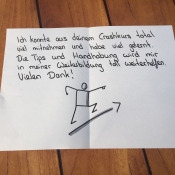 Ich konnte aus deinem Crashkurs total
viel mitnehmen und habe viel gelernt.
Die Tips und Handhabung wird mir
in meiner Weiterbildung toll weiterhelfen.
Vielen Dank!